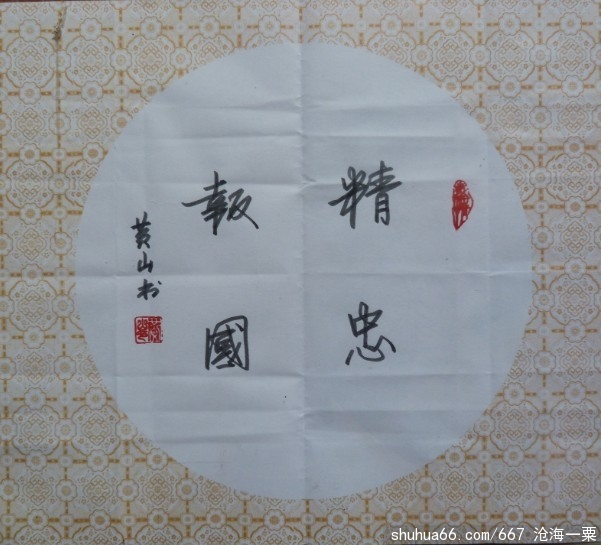 精忠
報國
黄山书
shuhua66.com/667 沧海一粟